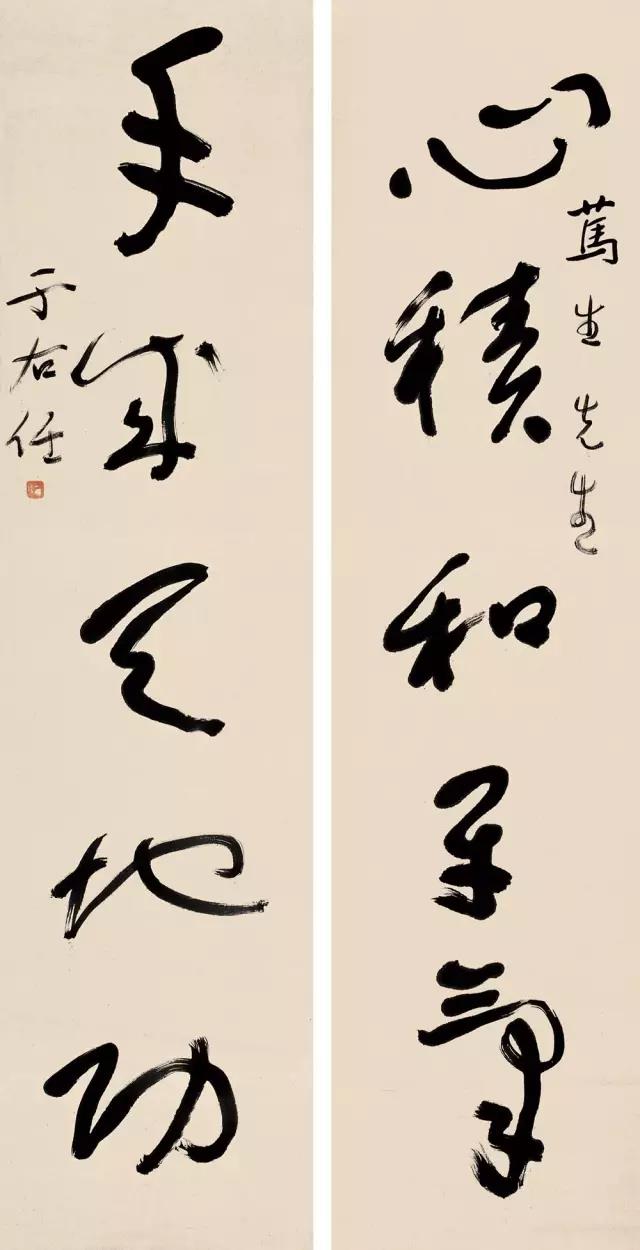 心積和平氣
篤生先生
手成天地功
于右任